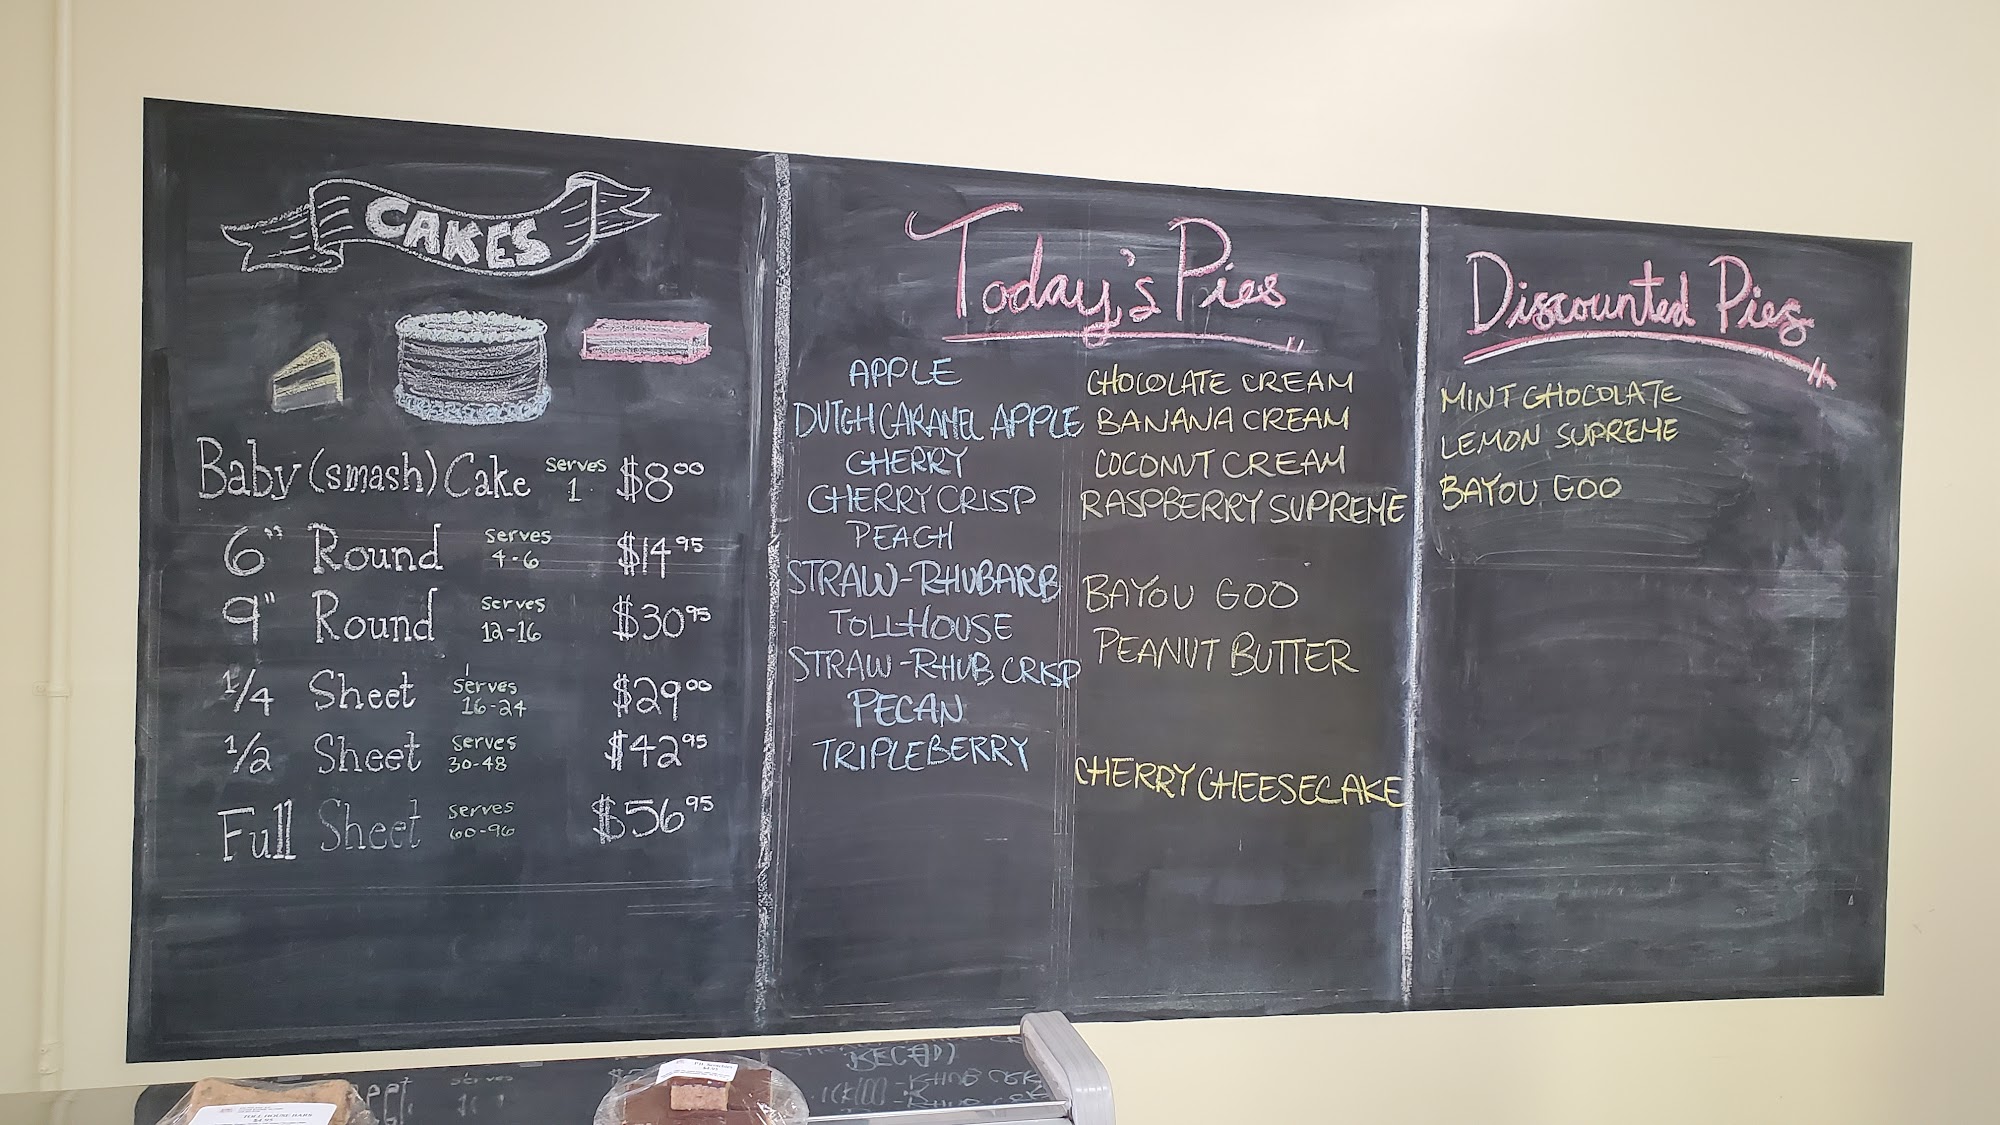 CAKES
Baby (smash) Cake serves 1 $8.00
6" Round serves 4-6 $14.95
9" Round serves 12-16 $30.95
1/4 Sheet serves 16-24 $29.00
1/2 Sheet serves 30-48 $42.95
Full Sheet serves 60-96 $56.95
Today's Pies
APPLE
DUTCH CARAMEL APPLE
CHERRY
CHERRY CRISP
PEACH
STRAW-RHUBARB
TOLLHOUSE
STRAW-RHUB CRISP
PECAN
TRIPLEBERRY
CHOCOLATE CREAM
BANANA CREAM
COCONUT CREAM
RASPBERRY SUPREME
BAYOU GOO
PEANUT BUTTER
CHERRY CHEESECAKE
Discounted Pies
MINT CHOCOLATE
LEMON SUPREME
BAYOU GOO
TOLL HOUSE BARS
$4.95